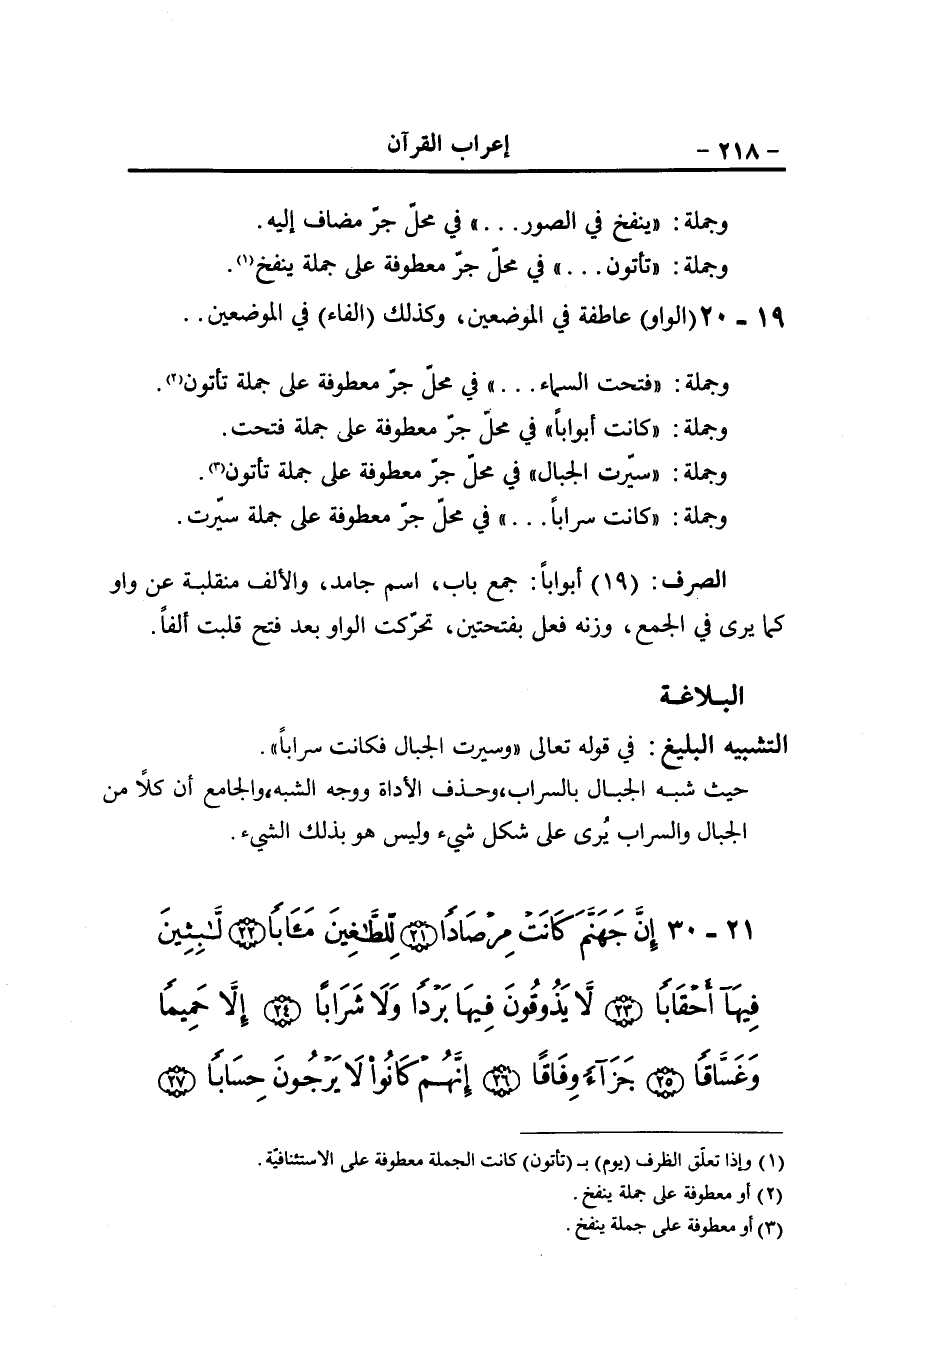 - ٢١٨ - إعراب القرآن
وجملة: «ينفخ في الصور...» في محلّ جرّ مضاف إليه.
وجملة: «تأتون...» في محلّ جرّ معطوفة على جملة ينفخ(١).
١٩ - ٢٠ (الواو) عاطفة في الموضعين، وكذلك (الفاء) في الموضعين..
وجملة: «فتحت السماء...» في محلّ جرّ معطوفة على جملة تأتون(٢).
وجملة: «كانت أبواباً» في محلّ جرّ معطوفة على جملة فتحت.
وجملة: «سيّرت الجبال» في محلّ جرّ معطوفة على جملة تأتون(٣).
وجملة: «كانت سراباً...» في محلّ جرّ معطوفة على جملة سيّرت.
الصرف: (١٩) أبواباً: جمع باب، اسم جامد، والألف منقلبة عن واو
كما يرى في الجمع، وزنه فعل بفتحتين، تحرّكت الواو بعد فتح قلبت ألفاً.
البلاغة
التشبيه البليغ: في قوله تعالى «وسيرت الجبال فكانت سراباً».
حيث شبه الجبال بالسراب،وحذف الأداة ووجه الشبه،والجامع أن كلاً من
الجبال والسراب يُرى على شكل شيء وليس هو بذلك الشيء.
٢١ - ٣٠ إِنَّ جَهَنَّمَ كَانَتْ مِرْصَادًا ٢١ لِّلطَّٰغِينَ مَـَٔابًا ٢٢ لَّٰبِثِينَ
فِيهَآ أَحْقَابًا ٢٣ لَّا يَذُوقُونَ فِيهَا بَرْدًا وَلَا شَرَابًا ٢٤ إِلَّا حَمِيمًا
وَغَسَّاقًا ٢٥ جَزَآءً وِفَاقًا ٢٦ إِنَّهُمْ كَانُوا۟ لَا يَرْجُونَ حِسَابًا ٢٧
(١) وإذا تعلّق الظرف (يوم) بـ (تأتون) كانت الجملة معطوفة على الاستئنافيّة.
(٢) أو معطوفة على جملة ينفخ.
(٣) أو معطوفة على جملة ينفخ.